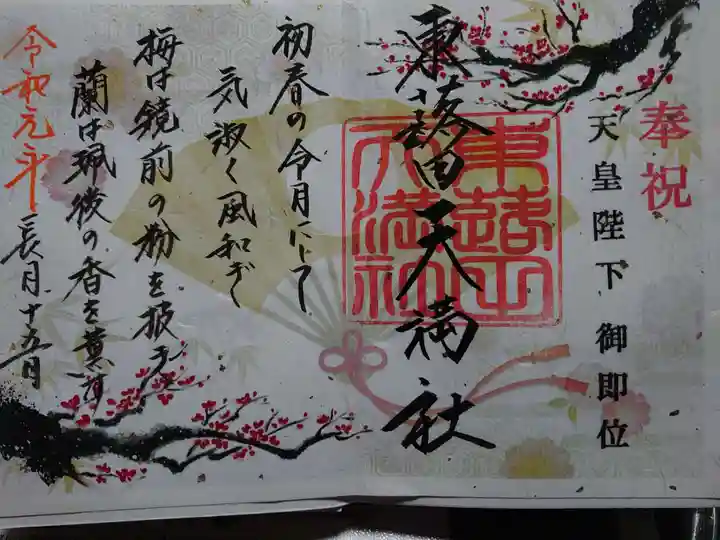 奉祝
天皇陛下御即位
東蕗田天満社
東蕗田天満社
初春の令月にして
気淑く風和ぎ
梅は鏡前の粉を披き
蘭は珮後の香を薫す
令和元年
長月十五日